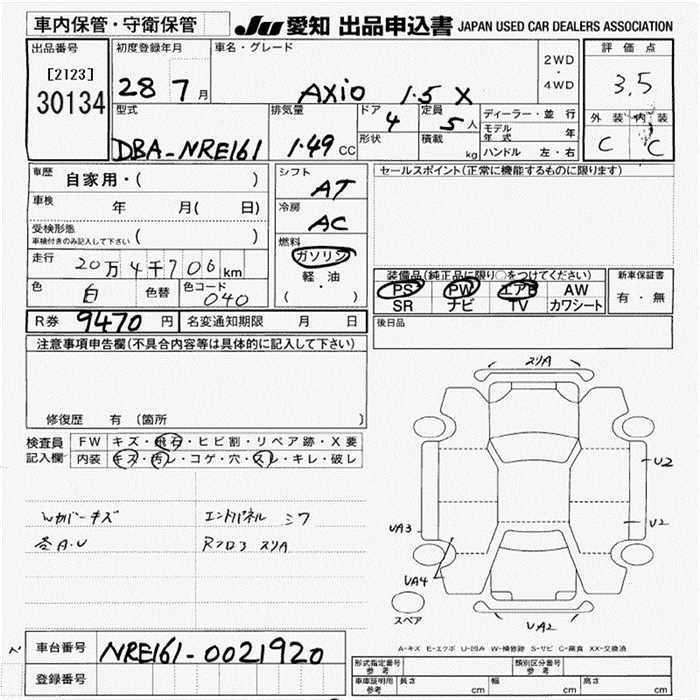 車内保管・守衛保管
JU 愛知 出品申込書 JAPAN USED CAR DEALERS ASSOCIATION
出品番号
[2123]
30134
初度登録年月
28 7月
車名・グレード
AXio 1.5 X
2WD
・
4WD
評価点
3.5
外装 内装
C C
型式
DBA-NRE161
排気量
1.49 CC
ドア
4
定員
5人
形状
積載
kg
ディーラー・並行
モデル年式 年
ハンドル 左・右
車歴 自家用・( )
車検 年 月( 日)
受検形態
車検付きのみ記入して下さい ( )
走行 20万4千706km
色 白 色替 色コード 040
シフト
AT
冷房
AC
燃料
ガソリン
軽・油
( )
セールスポイント(正常に機能するものに限ります)
装備品(純正品に限り○をつけてください)
PS PW エアB AW
SR ナビ TV カワシート
新車保証書
有・無
R券 9470円 名変通知期限 月 日
後日品
注意事項申告欄(不具合内容等は具体的に記入して下さい)
修復歴 有 〔箇所 〕
検査員記入欄
FW キズ・飛石・ヒビ割・リペア跡・X要
内装 キズ・汚レ・コゲ・穴・スレ・キレ・破レ
Wカバーキズ
エンドパネル シワ
巻A・U
Rフロア スリA
スリA
U2
U2
UA3
UA4
UA2
スペア
A-キズ E-エクボ U-凹み W-補修跡 S-サビ C-腐食 XX-交換済
車台番号 NRE161-0021920
登録番号
形式指定番号
参考
類別区分番号
参考
車庫証明用
参考
長さ cm 幅 cm 高さ cm